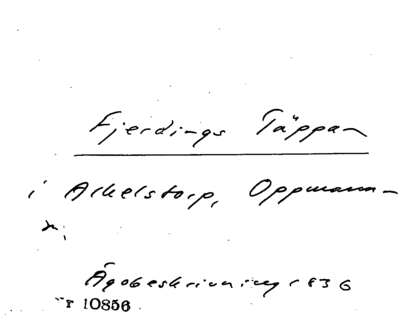 Fjerdings Täppan
i Arkelstorp, Oppmanna
s.
Ägobeskrivning 1836
nr 10856